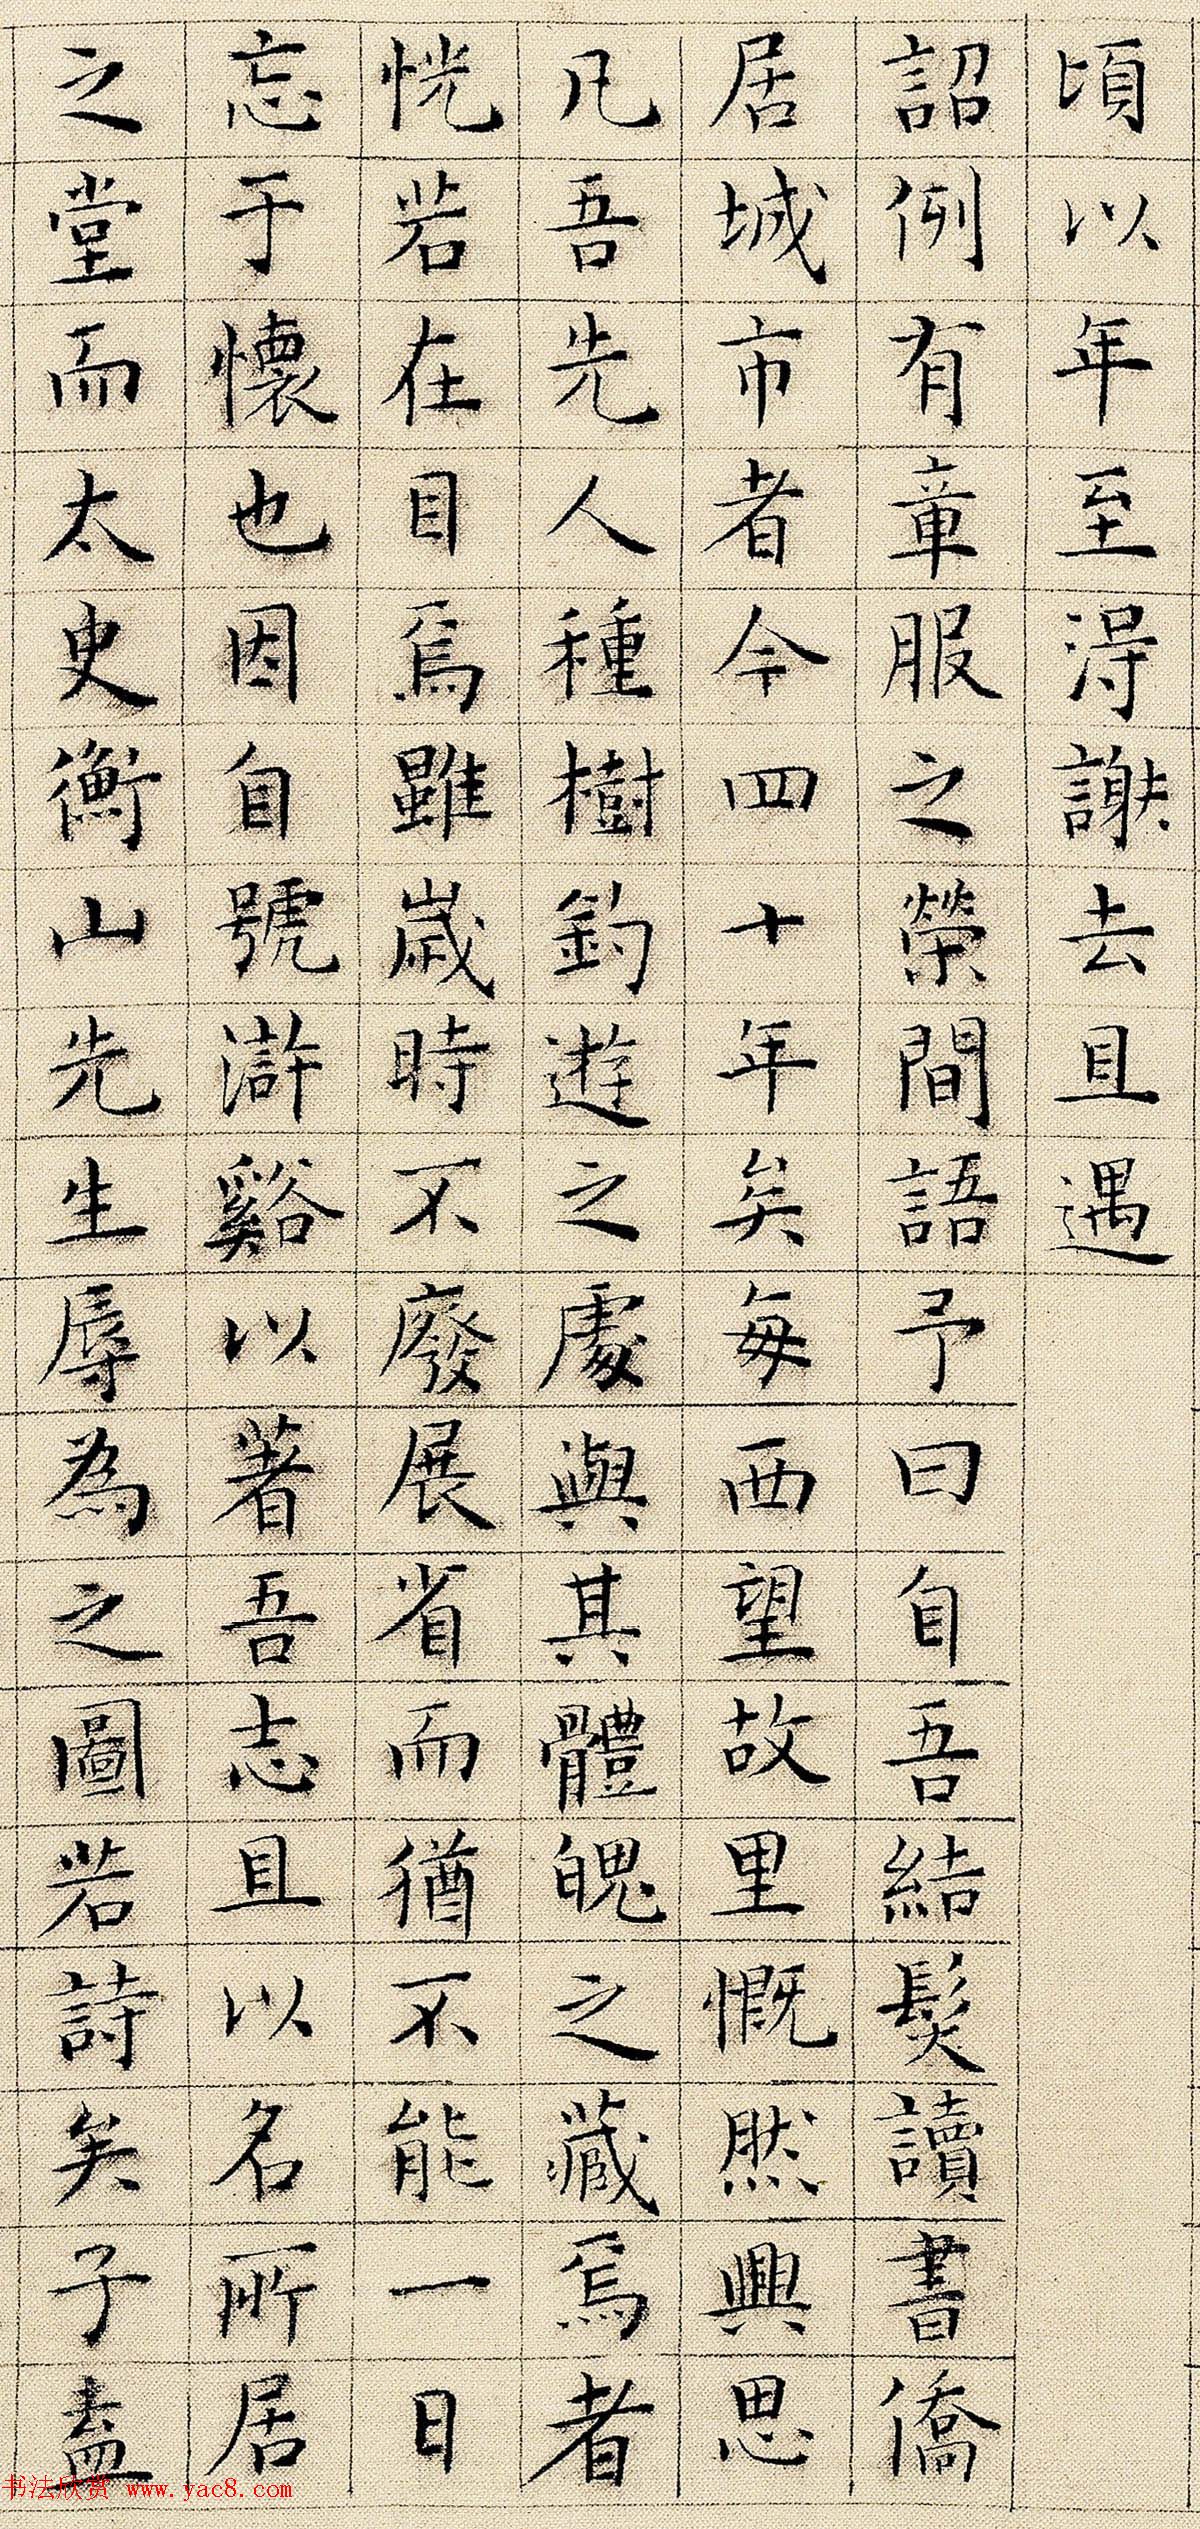 頃以年至得謝去且遇
詔例有章服之榮間語予曰自吾結髮讀書僑
居城市者今四十年矣每西望故里慨然興思
凡吾先人種樹釣遊之處與其體魄之藏焉者
恍若在目焉雖歲時不廢展省而猶不能一日
忘于懷也因自號滸谿以著吾志且以名所居
之堂而太史衡山先生辱為之圖若詩矣子盍
书法欣赏 www.yac8.com